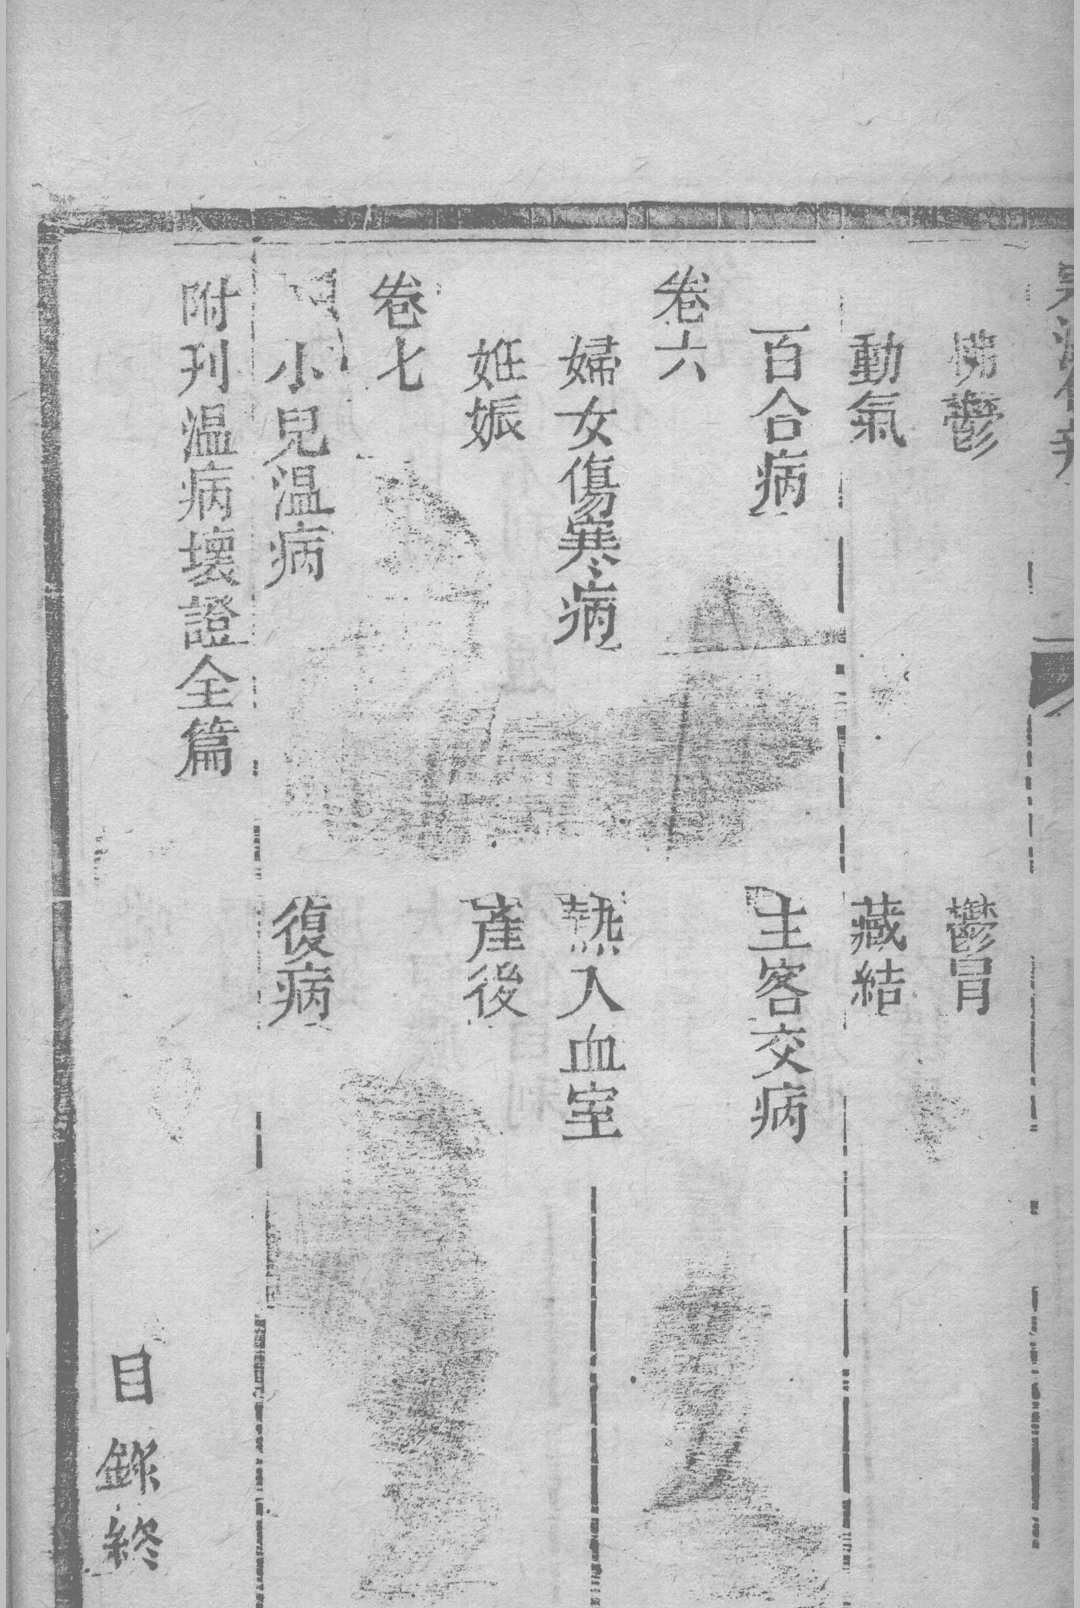 怫鬱　鬱冒
動氣　藏結
百合病　主客交病
卷六
婦女傷寒病　熱入血室
妊娠　產後
卷七
小兒温病　復病
附刊温病壞證全篇
目錄終